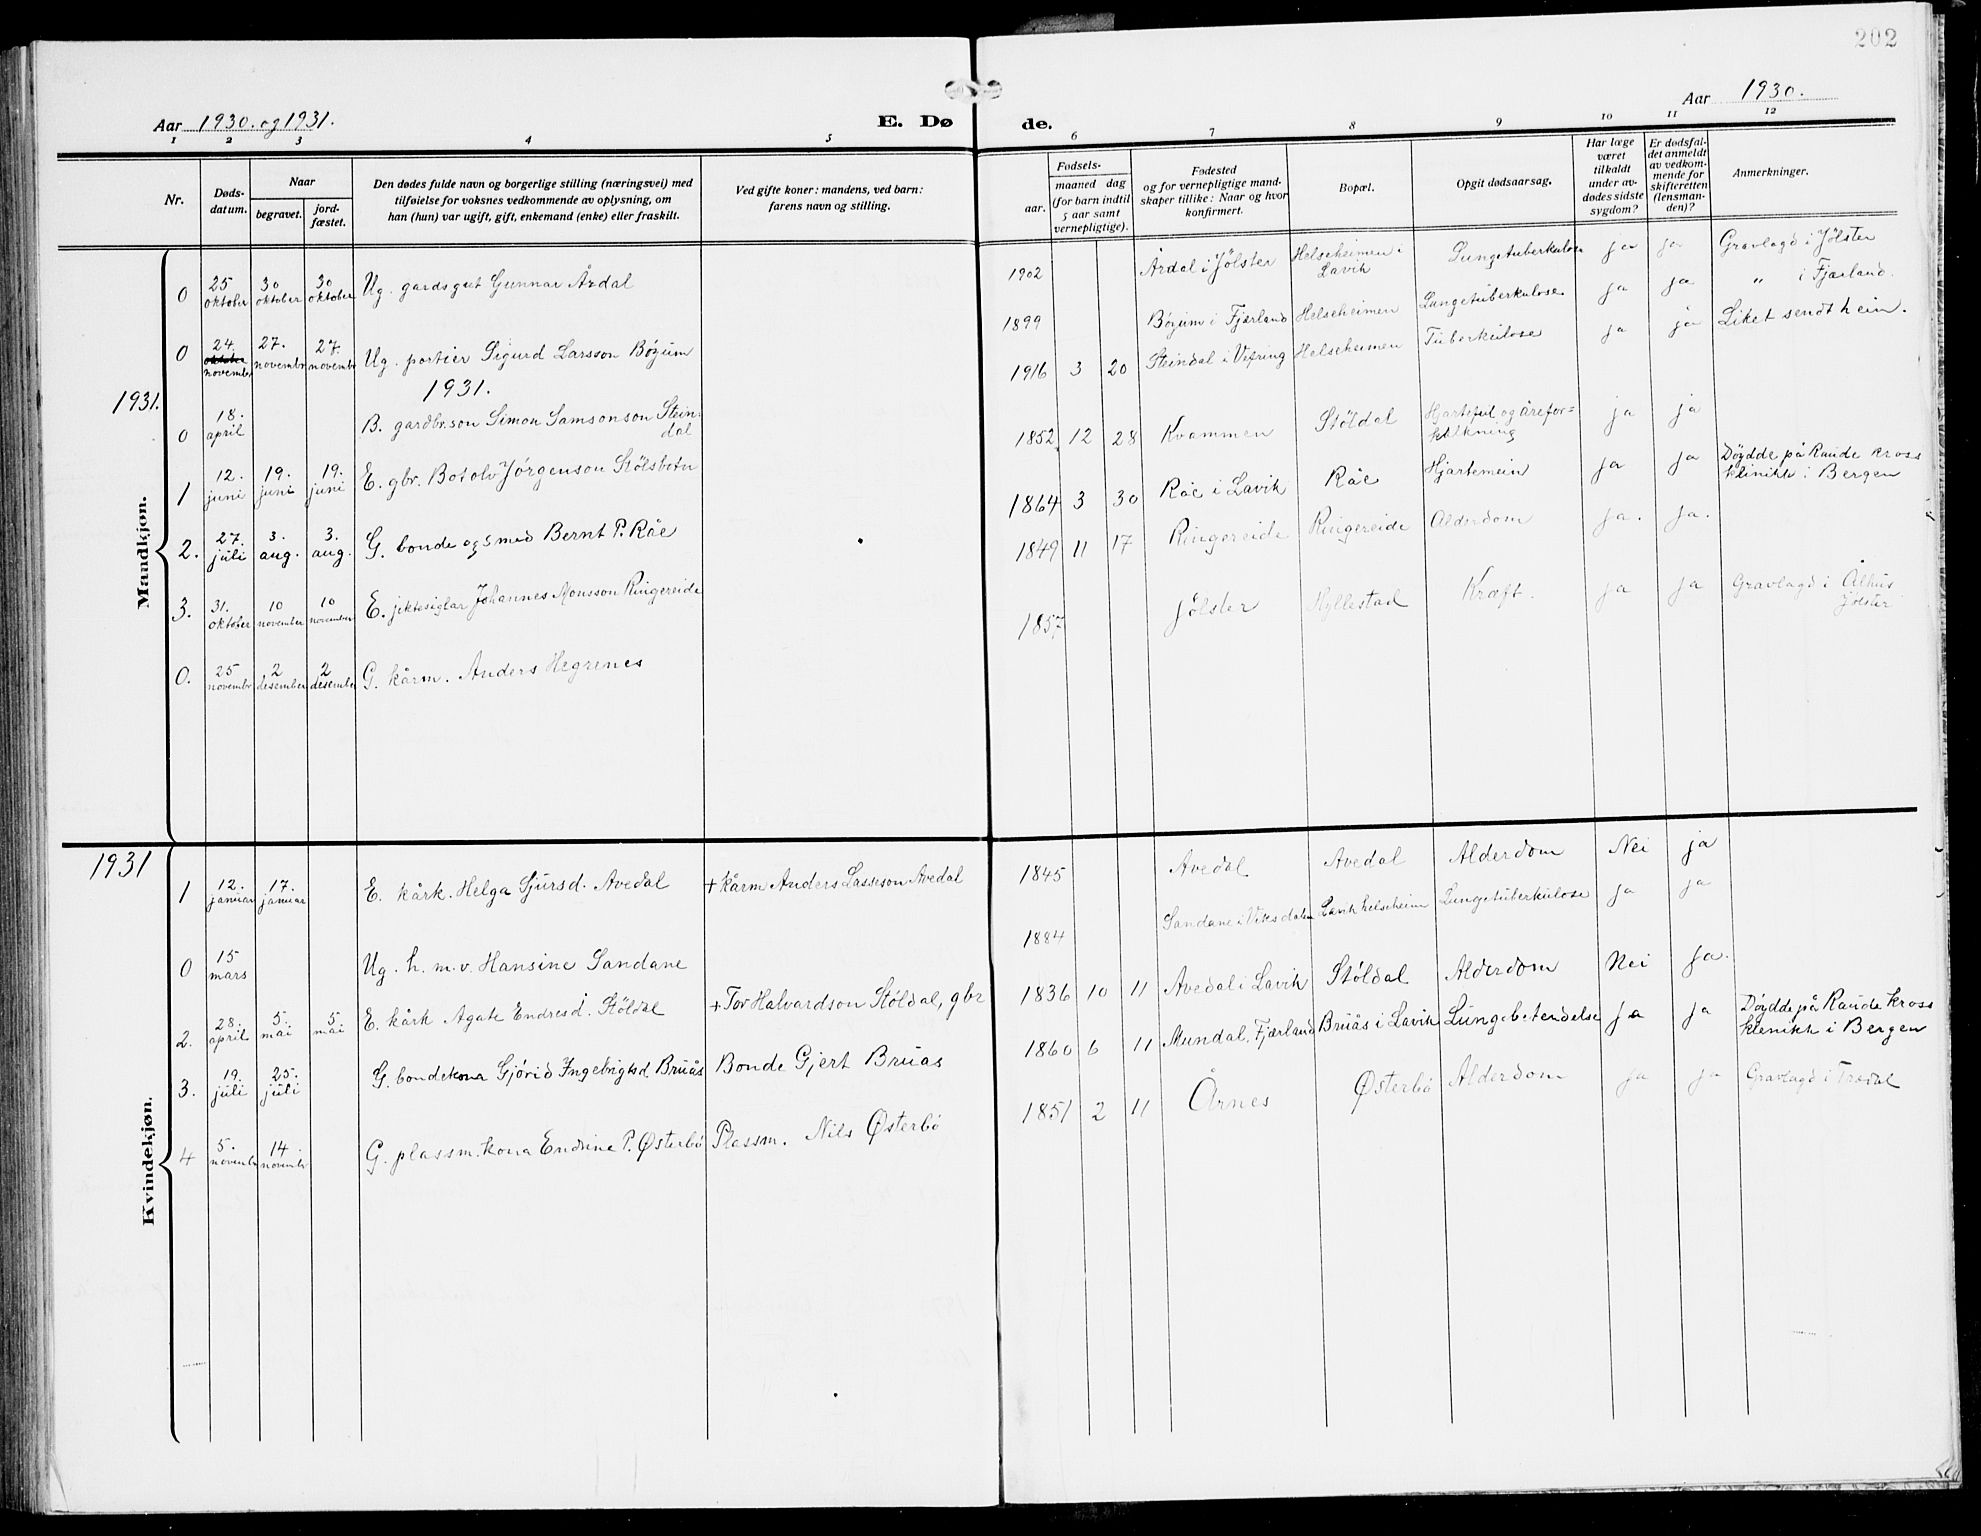 202
Aar 1930. og 1931.
E. Dø
de.
Aar 1930.
1 2 3 4 5 6 7 8 9 10 11 12
Nr.
Døds-
datum.
Naar
begravet.
jord-
fæstet.
Den dødes fulde navn og borgerlige stilling (næringsvei) med
tilføielse for voksnes vedkommende av oplysning, om
han (hun) var ugift, gift, enkemand (enke) eller fraskilt.
Ved gifte koner: mandens, ved barn:
farens navn og stilling.
Fødsels-
aar.
maaned dag
(for barn indtil
5 aar samt
vernepligtige).
Fødested
og for vernepligtige mand-
skaper tillike: Naar og hvor
konfirmert.
Bopæl.
Opgit dødsaarsag.
Har læge
været
tilkaldt
under av-
dødes sidste
sygdom?
Er dødsfal-
det anmeldt
av vedkom-
mende for
skifteretten
(lensman-
den)?
Anmerkninger.
Mandkjøn.
0 25 oktober 30 oktober 30 oktober Ug. gardsgut Gunnar Årdal 1902 Årdal i Jølster Helseheimen i Lavik Lungetuberkulose ja ja Gravlagd i Jølster
0 24. oktober novembr 27. novembr 27. novembr Ug. portier Sigurd Larsson Bøyum 1899 Bøyum i Fjærland Helseheimen Lungetuberkulose ja ja " i Fjærland.
1931.
1931.
0 18. april B. gardbr.son Simon Samsonson Steindal 1916 3 20 Steindal i Vefring Helseheimen Tuberkulose ja ja Liket sendt heim.
1 12. juni 19. juni 19. juni E. gbr. Botolv Jørgenson Stølsbotn 1852 12 28 Kvammen Støldal Hjartefeil og åreforkalkning ja ja
2. 27. juli 3. aug. 3. aug. G. bonde og smed Bernt P. Råe 1864 3 30 Råe i Lavik Råe Hjartemein ja ja Døydde på Raude kross klinikk i Bergen
3. 31. oktober 10 november 10 november E. jektesiglar Johannes Monsson Ringereide 1849 11 17 Ringereide Ringereide Alderdom ja. ja.
0. 25 novembr 2 desember 2 desember G. kårm. Anders Hegrenes 1857 Jølster Hyllestad Kræft. ja ja Gravlagd i Ålhus Jølster
Kvindekjøn.
1931
1 12. januar 17. januar E. kårk. Helga Sjursd. Avedal + kårm Anders Lasseson Avedal 1845 Avedal Avedal Alderdom Nei ja
0 15 mars Ug. h. m. v. Hansine Sandane 1884 Sandane i Viksdalen Lavik helseheim Lungetuberkulose ja ja
2. 28. april 5. mai 5 mai E. kårk Agate Endresd. Støldal + Tor Halvardson Støldal, gbr 1836 10 11 Avedal i Lavik Støldal Alderdom Nei Ja.
3. 19. juli 25. juli G. bondekona Gjørid Ingebrigtsd. Bruås Bonde Gjert Bruås 1860 6 11 Mundal, Fjærland Bruås i Lavik Lungebetendelse Ja ja Døydde på Raude kross klenikk i Bergen
4 5. novembr 14 novembr G. plassm. kona Endrine P. Østerbø Plassm. Nils Østerbø 1851 2 11 Årnes Østerbø Alderdom ja ja Gravlagd i Trædal